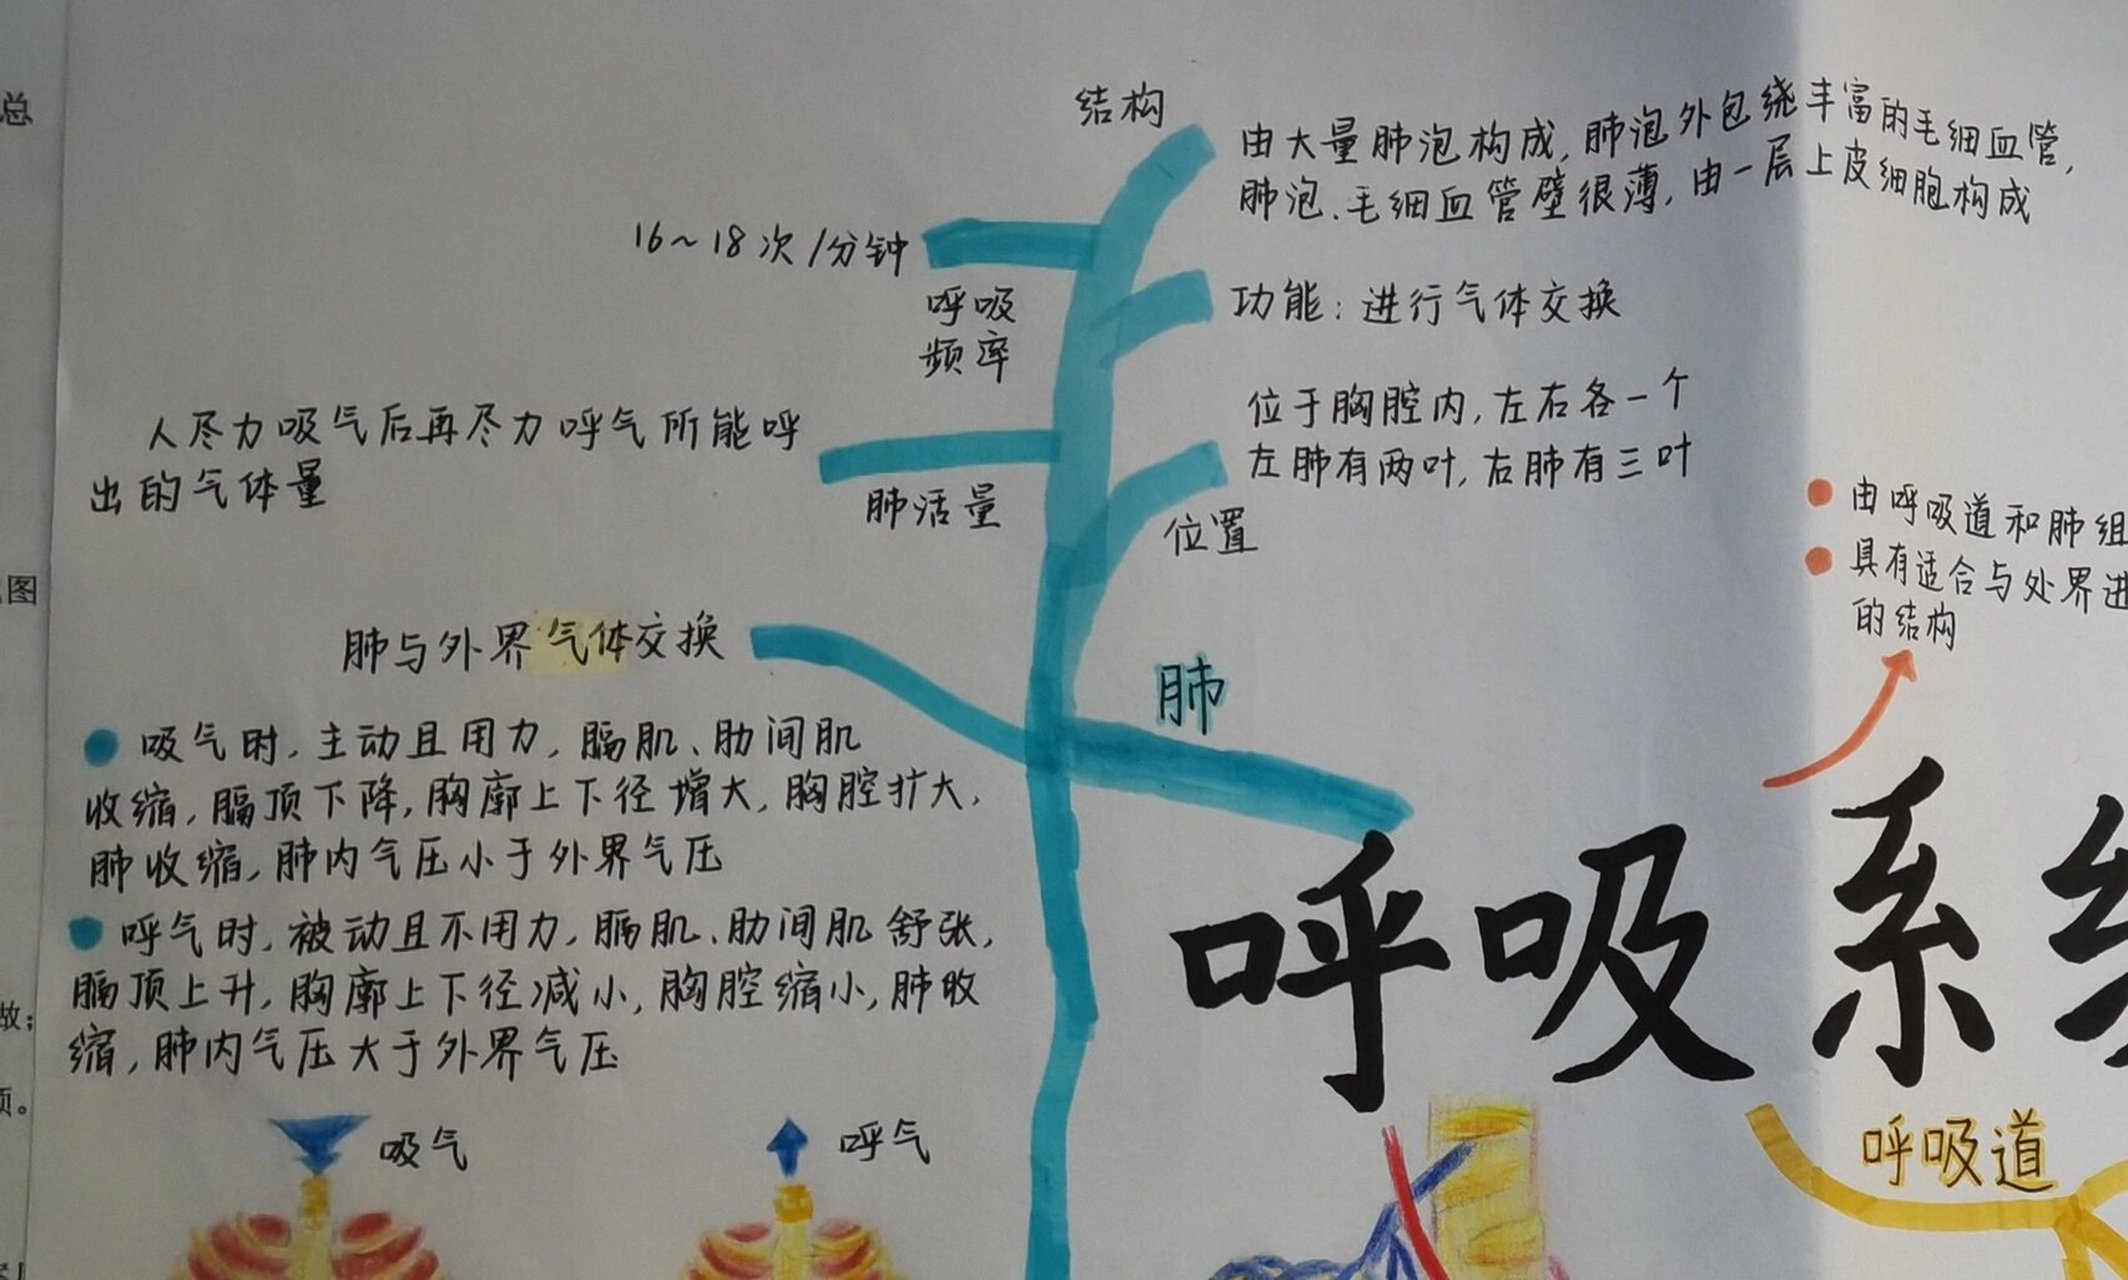 总
图
做;
项。
结构
由大量肺泡构成,肺泡外包绕丰富的毛细血管,
肺泡、毛细血管壁很薄,由一层上皮细胞构成
16~18次/分钟
呼吸
频率
功能:进行气体交换
人尽力吸气后再尽力呼气所能呼
出的气体量
肺活量
位于胸腔内,左右各一个
左肺有两叶,右肺有三叶
位置
由呼吸道和肺组
具有适合与处界进
的结构
肺与外界气体交换
肺
吸气时,主动且用力,膈肌、肋间肌
收缩,膈顶下降,胸廓上下径增大,胸腔扩大,
肺收缩,肺内气压小于外界气压
呼气时,被动且不用力,膈肌、肋间肌舒张,
膈顶上升,胸廓上下径减小,胸腔缩小,肺收
缩,肺内气压大于外界气压
呼吸系
吸气
呼气
呼吸道